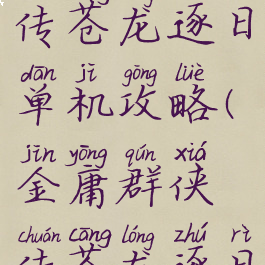 传苍龙逐日
dān jī gōng lüè
单机攻略(
jīn yōng qún xiá
金庸群侠
chuán cāng lóng zhú rì
传苍龙逐日